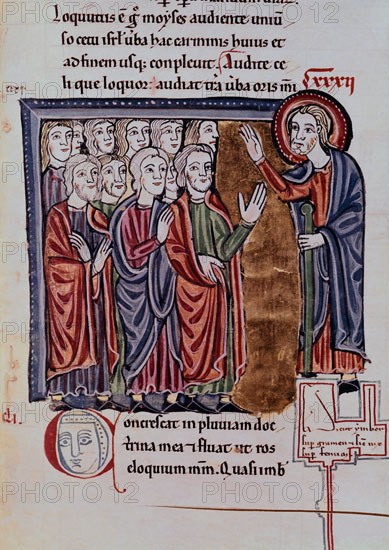 Loquutus ē g̅ moyses audiente uniū
so cetu isr̅l u̅ba hac carminis huius et
ad finem usq; compleuit. Audite ce
li que loquor: audiat tr̅a u̅ba oris m̅i XXXII
Concrescat in pluuiam doc
trina mea et fluat ut ros
eloquium m̅m. Quasi imb
sup gramen
sup
PHOTO12